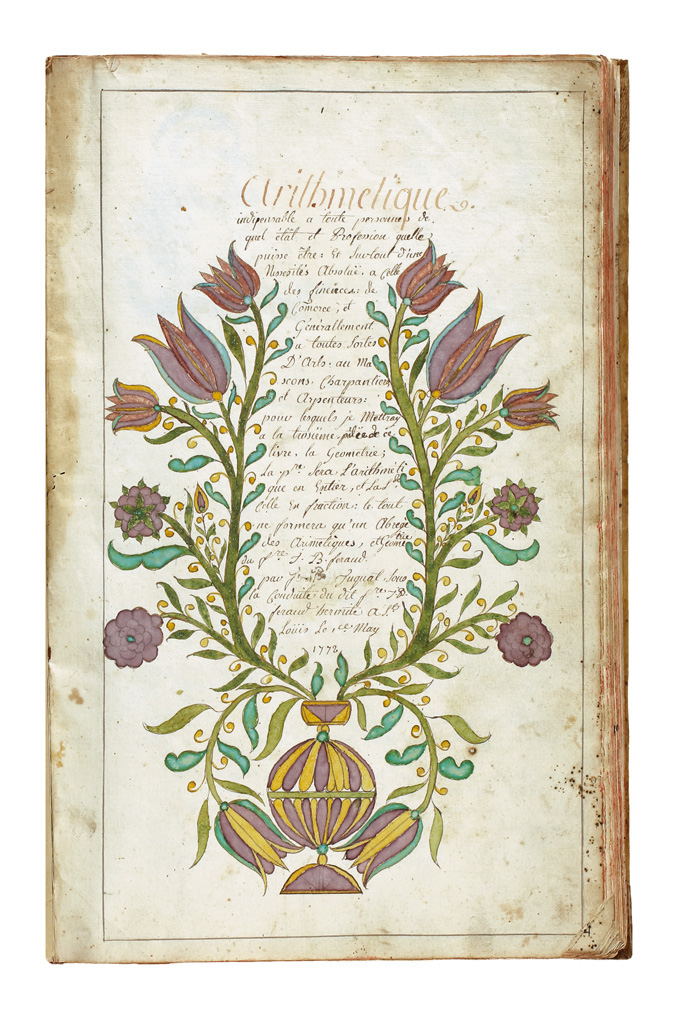 1
Arithmetique
indispensable a toute personnes de
quel êtât et Profession quelle
puisse être: Et Surtout d'une
Nessesités Absoluë, a Celle
des finences: de
Comerce; et
Générallement
a toutes Sortes
D'Arts. au Ma
scons, Charpantiers
et Arpenteurs:
pour lesquels je Mettray
a la troisième de ce
livre, la Geometrie;
La p.re Sera L'arithmeti
que en Entier, et La S.de
Celle En fraction: le tout
ne formera qu'un Abregé
des Arimetiques, et Géome
trie
du f.re J. B. feraud.
par J. Juqual Sous
la Conduite du dit f.re J B
feraud hermite a S.t
Loüis Le 1.er May
1772